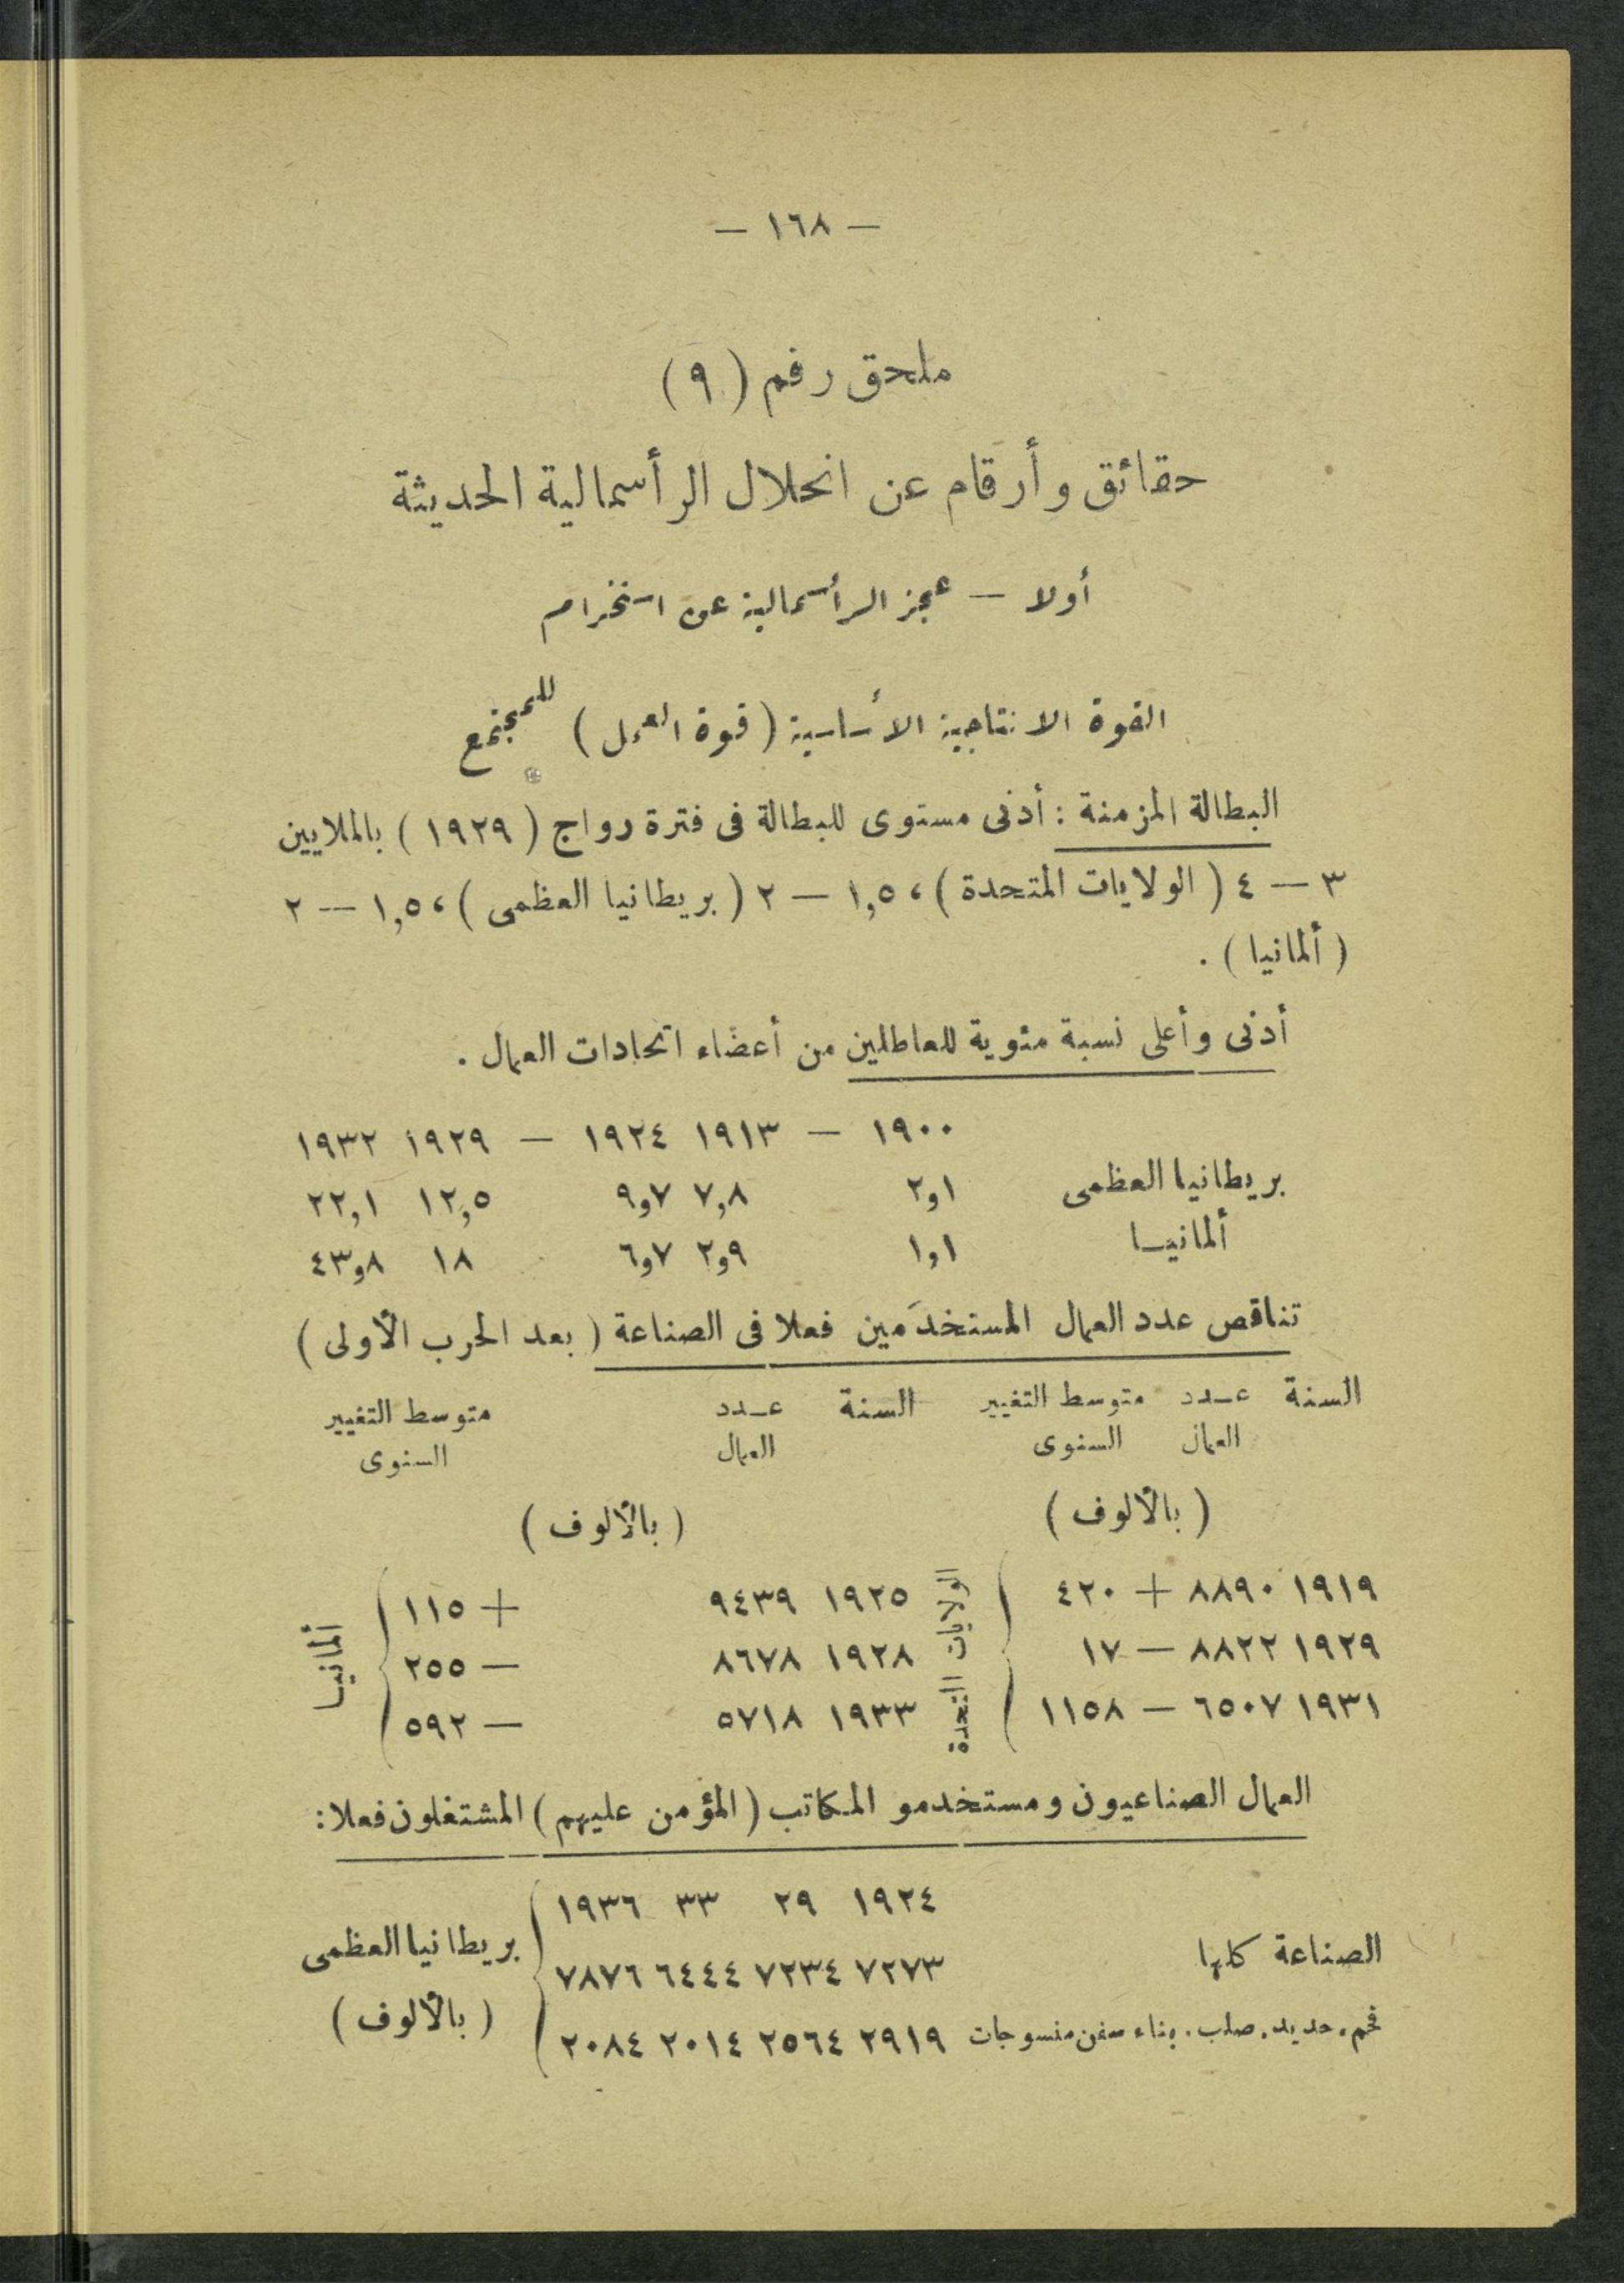 — ١٦٨ —
ملحق رقم ( ٩ )
حقائق وأرقام عن انحلال الرأسمالية الحديثة
أولا — عجز الرأسمالية عن استخدام
القوة الانتاجية الأساسية ( قوة العمل ) للمجتمع
البطالة المزمنة : أدنى مستوى للبطالة فى فترة رواج ( ١٩٢٩ ) بالملايين
٣ — ٤ ( الولايات المتحدة ) ، ١,٥ — ٢ ( بريطانيا العظمى ) ، ١,٥ — ٢
( ألمانيا ) .
أدنى وأعلى نسبة مئوية للعاطلين من أعضاء اتحادات العمال .
١٩٠٠ — ١٩١٣ ١٩٢٤ — ١٩٢٩ ١٩٣٢
بريطانيا العظمى ٢و١ ٧,٨ ٩و٧ ١٢,٥ ٢٢,١
ألمانيا ١و١ ٢و٩ ٦و٧ ١٨ ٤٣و٨
تناقص عدد العمال المستخدَمين فعلا فى الصناعة ( بعد الحرب الأولى )
السنة عدد متوسط التغيير السنة عدد متوسط التغيير
العمال السنوى العمال السنوى
( بالألوف ) ( بالألوف )
١٩١٩ ٨٨٩٠ + ٤٢٠ ١٩٢٥ ٩٤٣٩ + ١١٥
١٩٢٩ ٨٨٢٢ — ١٧ الولايات المتحدة ١٩٢٨ ٨٦٧٨ — ٢٥٥ ألمانيا
١٩٣١ ٦٥٠٧ — ١١٥٨ ١٩٣٣ ٥٧١٨ — ٥٩٢
العمال الصناعيون ومستخدمو المكاتب ( المؤمن عليهم ) المشتغلون فعلا :
١٩٢٤ ٢٩ ٣٣ ١٩٣٦
الصناعة كلها ٧٢٧٣ ٧٢٣٤ ٦٤٤٤ ٧٨٧٦ بريطانيا العظمى
فحم. حديد. صلب. بناء سفن منسوجات ٢٩١٩ ٢٥٦٤ ٢٠١٤ ٢٠٨٤ ( بالألوف )